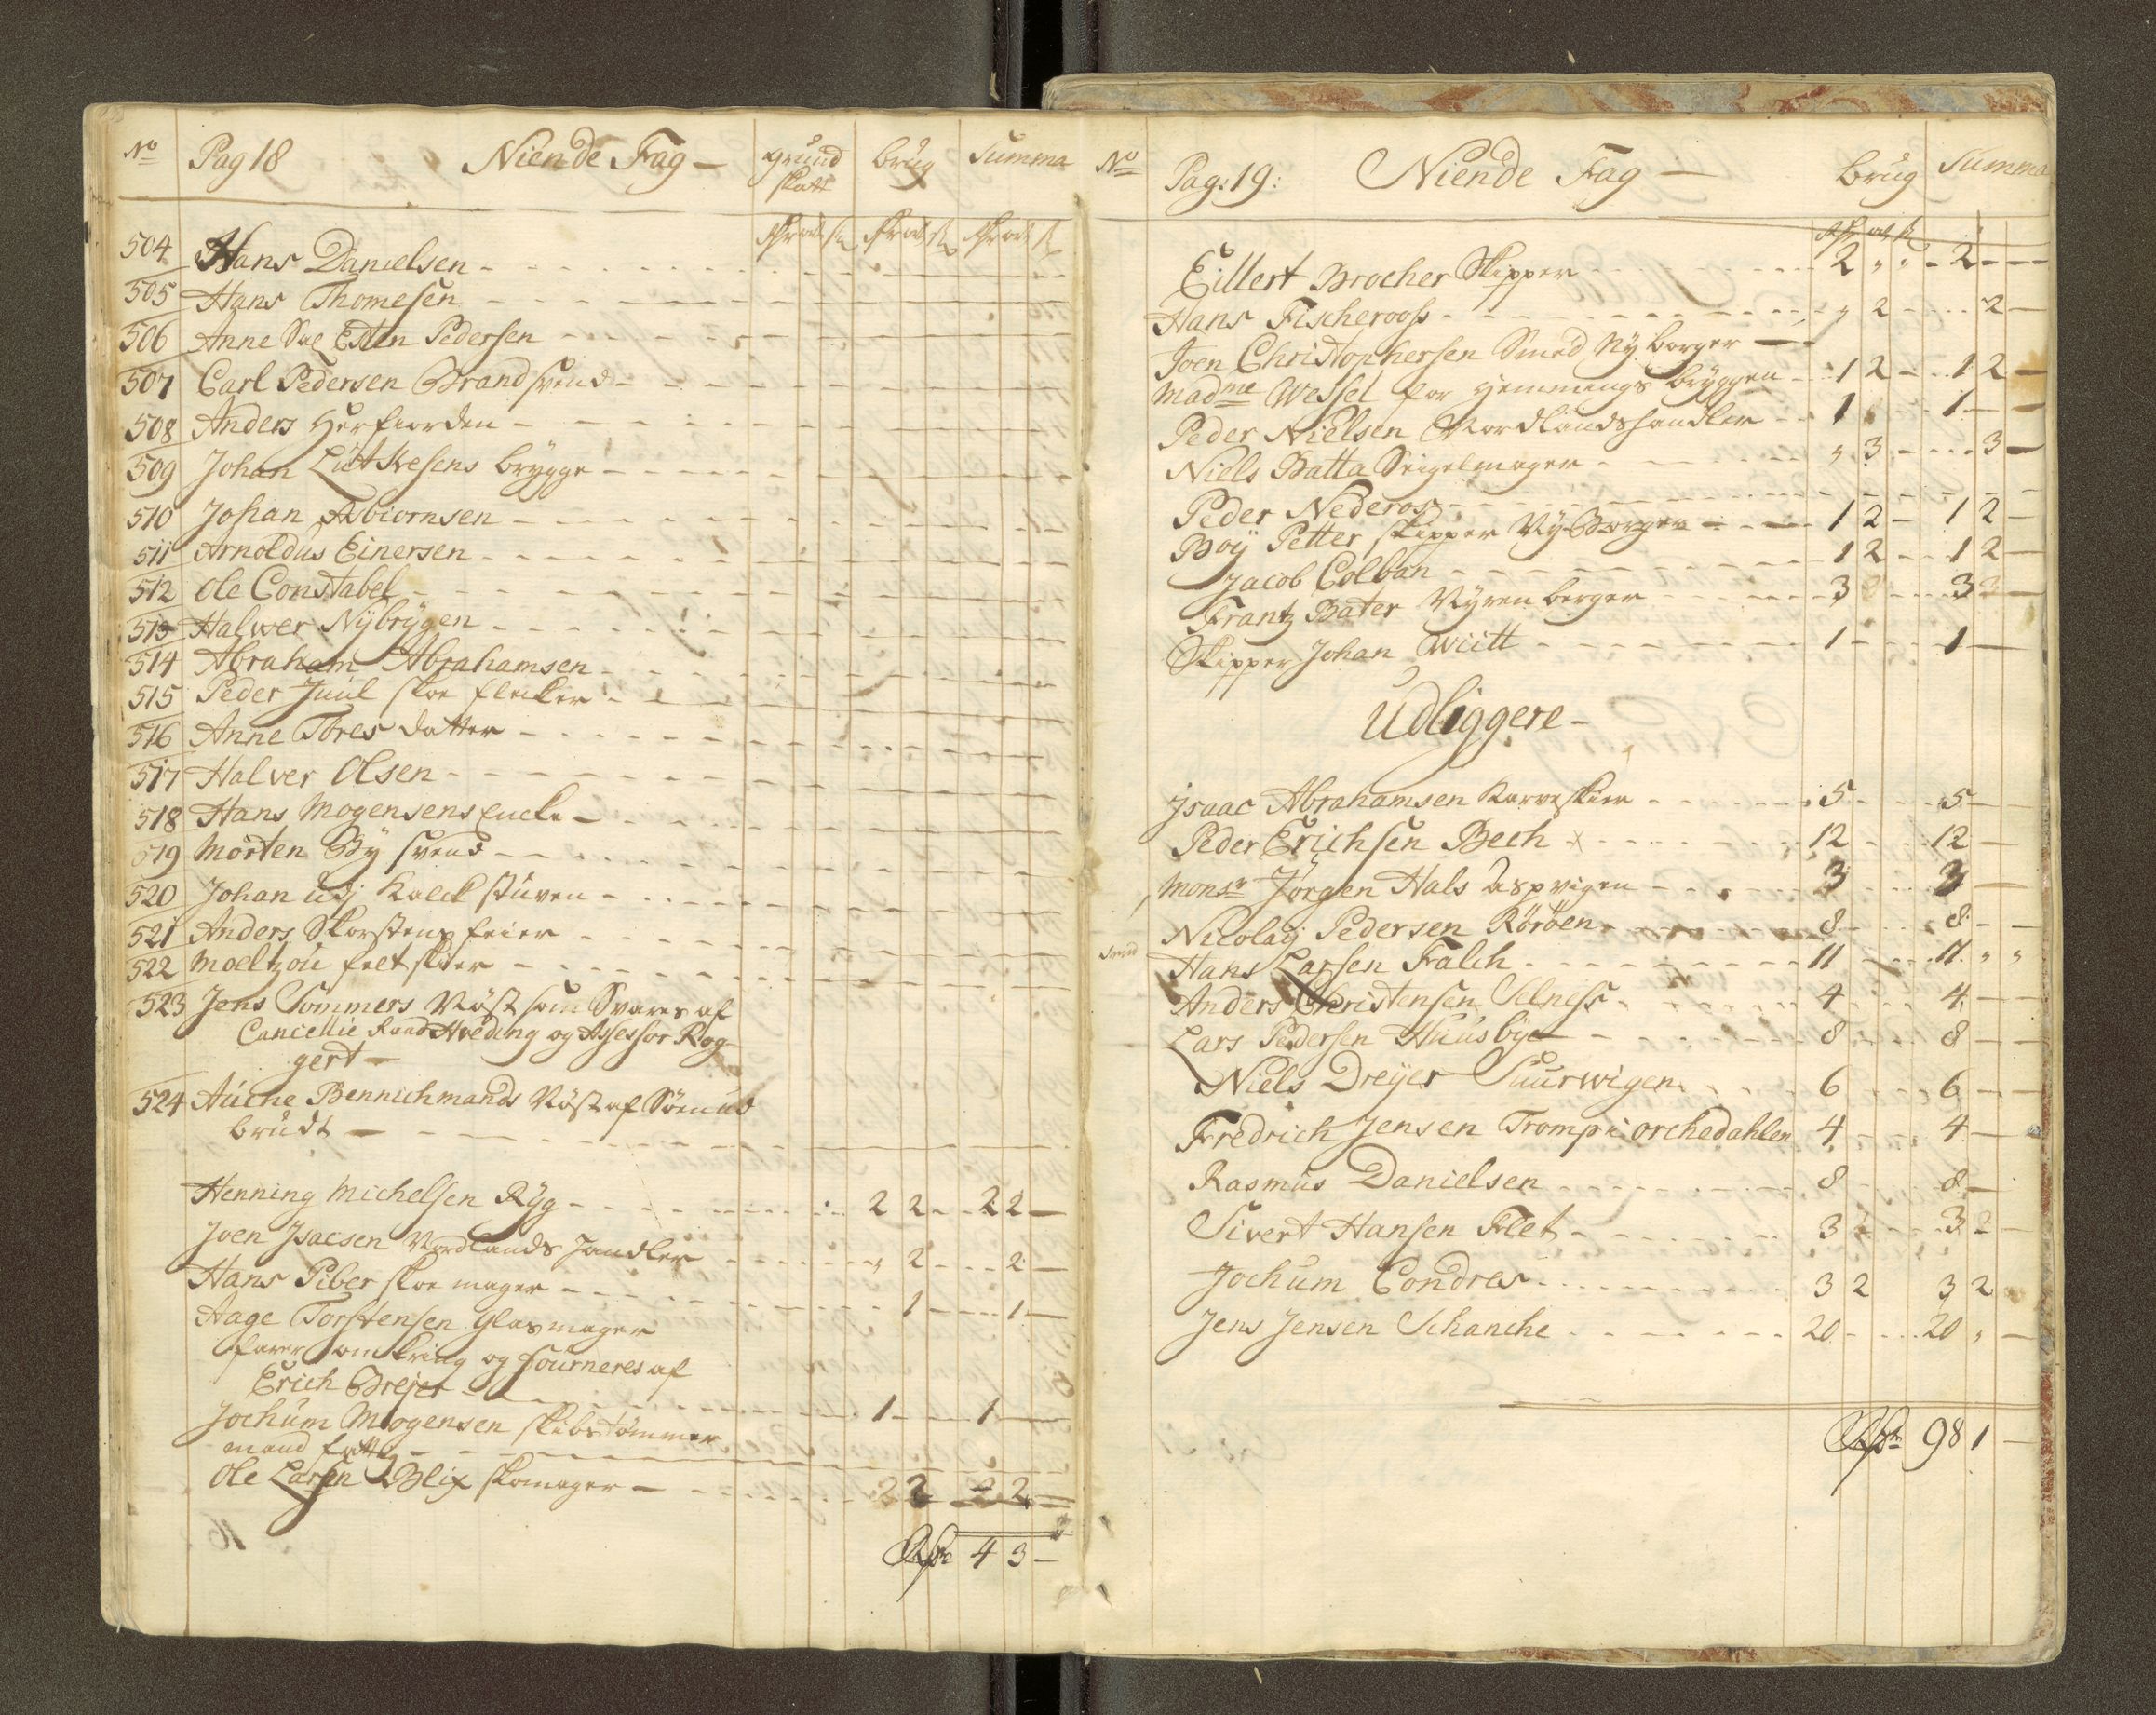 No Pag 18 Niende Fag - grund brug Summa
skatt
504 Hans Danielsen
505 Hans Thomesen
506 Anne Sal Esten Pedersen
507 Carl Pedersen Brandsvend
508 Anders Herfiorden
509 Johan Lütkesens brygge
510 Johan Abiornsen
511 Arnoldus Einersen
512 Ole Constabel
513 Halwer Nÿbrÿgen
514 Abraham Abrahamsen
515 Peder Juul skoe flicker
516 Anne Tores datter
517 Halver Olsen
518 Hans Mogensens Encke
519 Morten Bÿ svend
520 Johan udj Kalck stuven
521 Anders Skorstens feier
522 Moeltzou felt skier
523 Jens Sommers Röst som Svares af
Cancellie Raad Hveding og Assessor Rog-
gert -
524 Auche Bennichmands Röst af
brudt
Henning Michelsen Rÿg 2 2 - 2 2 -
Joen Jsacsen Nordlands handler " 2 - 2 -
Hans Piber skoe mager 1 - 1 -
Aage Torstensen Glasmager
farer omkring og fourneres af
Erich Breier 1 - 1 -
Jochum Mogensen skibstømmer
mand fattig
Ole Larsen Blix skomager 2 2 - 2 2 -
Rdr 4 3 -
No Pag: 19: Niende Fag - brug Summa
Eillert Brocher Skipper 2 " " - 2 - -
Hans Fischeroos " 2 - 2 -
Joen Christophersen Smed Nÿ borger -
Madme Wessel for Hemmings brÿggen 1 2 - 1 2 -
Peder Nielsen Nordlandshandler 1 - 1 - -
Niels Batta Seigelmager " 3 - 3 -
Peder Nederos
Boÿ Petter skipper Nÿ Borger 1 2 - 1 2 -
Jacob Colban 1 2 - 1 2 -
Frantz Bater Nÿren berger 3 2 - 3 2 -
Skipper Johan Witt 1 - 1 -
Udliggere -
Jsaac Abrahamsen 5 - 5 -
Peder Erichsen Bech x 12 - 12 -
Monsr Jørgen Hals Aspvigen 3 - 3 -
Nicolaÿ Pedersen Röröen 8 - 8 - -
Smed Hans Larsen Falch 11 - 11 " "
Anders Christensen Selness 4 - 4 - -
Lars Pedersen Huusbye 8 - 8 - -
Niels Dreÿer Suurwigen 6 - 6 - -
Fredrich Jensen Tromp i orchedahlen 4 - 4 -
Rasmus Danielsen 8 - 8 -
Sivert Hansen Flet 3 2 - 3 2 -
Jochum Condres 3 2 3 2
Jens Jensen Schanche 20 - 20 " -
Rdr 98 1 -